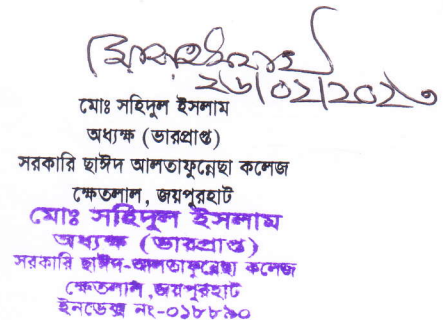 ২৬/০২/২০২৩
মোঃ সহিদুল ইসলাম
অধ্যক্ষ (ভারপ্রাপ্ত)
সরকারি ছাঈদ আলতাফুন্নেছা কলেজ
ক্ষেতলাল, জয়পুরহাট
মোঃ সহিদুল ইসলাম
অধ্যক্ষ (ভারপ্রাপ্ত)
সরকারি ছাঈদ-আলতাফুন্নেছা কলেজ
ক্ষেতলাল, জয়পুরহাট
ইনডেক্স নং-০১৮৮৯০